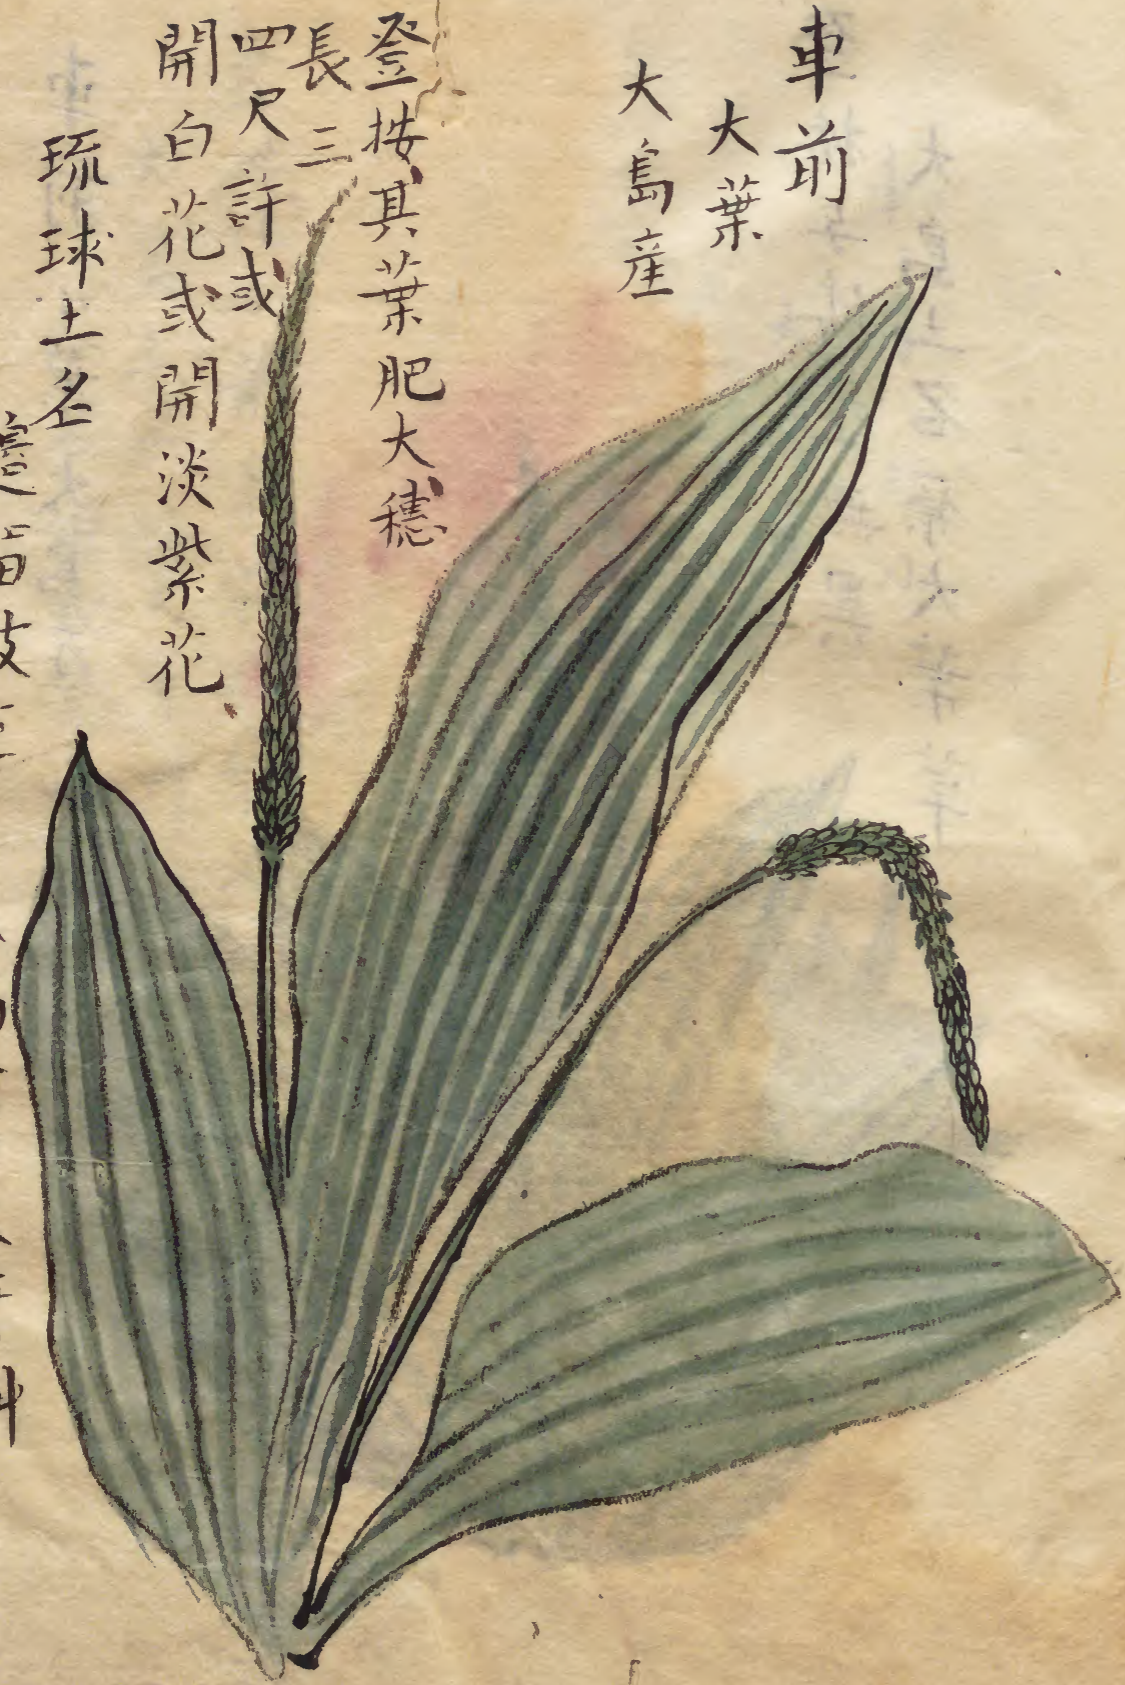 車前
大葉
大島産
登按其葉肥大穗
長三
四尺許或
開白花或開淡紫花
琉球土名